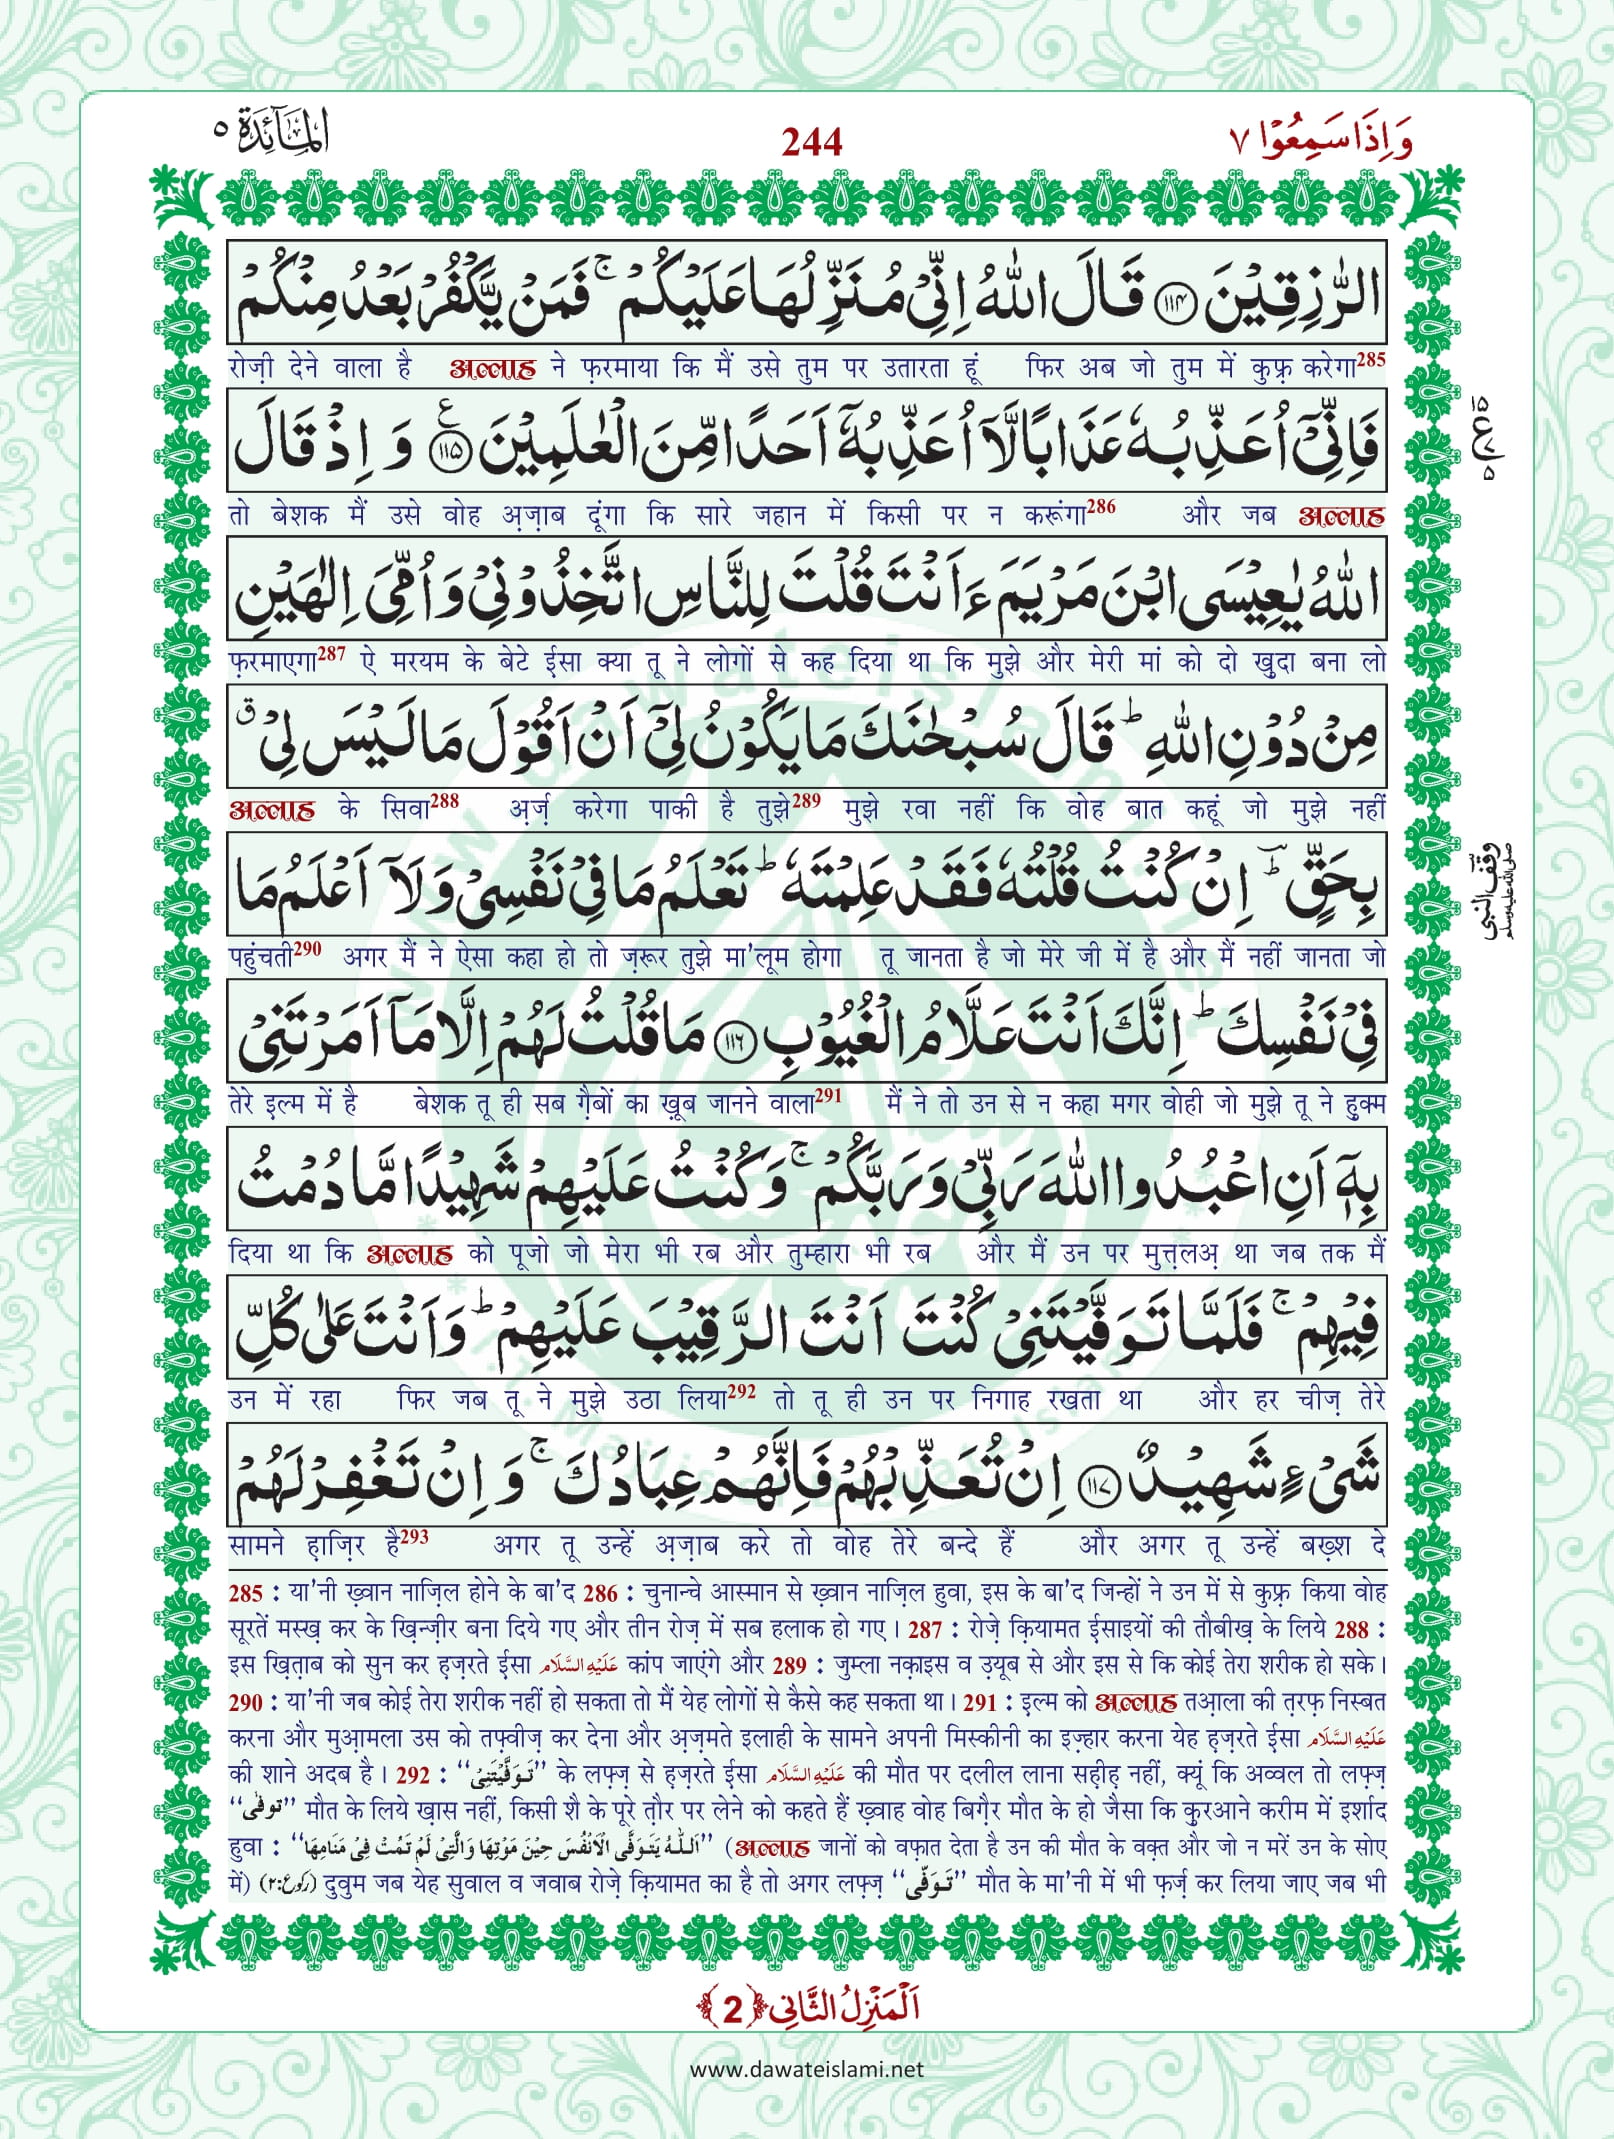 وَاِذَا سَمِعُوْا ٧ 244 اَلْمَآئِدَة ٥
الرّٰزِقِيْنَ ﴿۱۱۴﴾ قَالَ اللّٰهُ اِنِّيْ مُنَزِّلُهَا عَلَيْكُمْ ۚ فَمَنْ يَّكْفُرْ بَعْدُ مِنْكُمْ
रोज़ी देने वाला है अल्लाह ने फ़रमाया कि मैं उसे तुम पर उतारता हूं फिर अब जो तुम में कुफ़्र करेगा285
فَاِنِّيْۤ اُعَذِّبُهٗ عَذَابًا لَّاۤ اُعَذِّبُهٗۤ اَحَدًا مِّنَ الْعٰلَمِيْنَ ﴿۱۱۵﴾ ع وَ اِذْ قَالَ
तो बेशक मैं उसे वोह अ़ज़ाब दूंगा कि सारे जहान में किसी पर न करूंगा286 और जब अल्लाह
اللّٰهُ يٰعِيْسَى ابْنَ مَرْيَمَ ءَاَنْتَ قُلْتَ لِلنَّاسِ اتَّخِذُوْنِيْ وَ اُمِّيَ اِلٰهَيْنِ
फ़रमाएगा287 ऐ मरयम के बेटे ईसा क्या तू ने लोगों से कह दिया था कि मुझे और मेरी मां को दो ख़ुदा बना लो
مِنْ دُوْنِ اللّٰهِ ؕ قَالَ سُبْحٰنَكَ مَا يَكُوْنُ لِيْۤ اَنْ اَقُوْلَ مَا لَيْسَ لِيْ ۗ
अल्लाह के सिवा288 अ़र्ज़ करेगा पाकी है तुझे289 मुझे रवा नहीं कि वोह बात कहूं जो मुझे नहीं
بِحَقٍّ ؕ اِنْ كُنْتُ قُلْتُهٗ فَقَدْ عَلِمْتَهٗ ؕ تَعْلَمُ مَا فِيْ نَفْسِيْ وَ لَاۤ اَعْلَمُ مَا
पहुंचती290 अगर मैं ने ऐसा कहा हो तो ज़रूर तुझे मा'लूम होगा तू जानता है जो मेरे जी में है और मैं नहीं जानता जो
فِيْ نَفْسِكَ ؕ اِنَّكَ اَنْتَ عَلَّامُ الْغُيُوْبِ ﴿۱۱۶﴾ مَا قُلْتُ لَهُمْ اِلَّا مَاۤ اَمَرْتَنِيْ
तेरे इल्म में है बेशक तू ही सब ग़ैबों का ख़ूब जानने वाला291 मैं ने तो उन से न कहा मगर वोही जो मुझे तू ने हुक्म
بِهٖۤ اَنِ اعْبُدُوا اللّٰهَ رَبِّيْ وَ رَبَّكُمْ ۚ وَ كُنْتُ عَلَيْهِمْ شَهِيْدًا مَّا دُمْتُ
दिया था कि अल्लाह को पूजो जो मेरा भी रब और तुम्हारा भी रब और मैं उन पर मुत्त़लअ़ था जब तक मैं
فِيْهِمْ ۚ فَلَمَّا تَوَفَّيْتَنِيْ كُنْتَ اَنْتَ الرَّقِيْبَ عَلَيْهِمْ ؕ وَ اَنْتَ عَلٰى كُلِّ
उन में रहा फिर जब तू ने मुझे उठा लिया292 तो तू ही उन पर निगाह रखता था और हर चीज़ तेरे
شَيْءٍ شَهِيْدٌ ﴿۱۱۷﴾ اِنْ تُعَذِّبْهُمْ فَاِنَّهُمْ عِبَادُكَ ۚ وَ اِنْ تَغْفِرْ لَهُمْ
सामने ह़ाज़िर है293 अगर तू उन्हें अ़ज़ाब करे तो वोह तेरे बन्दे हैं और अगर तू उन्हें बख़्श दे
285 : या'नी ख़्वान नाज़िल होने के बा'द 286 : चुनान्चे आस्मान से ख़्वान नाज़िल हुवा, इस के बा'द जिन्हों ने उन में से कुफ़्र किया वोह
सूरतें मस्ख़ कर के ख़िन्ज़ीर बना दिये गए और तीन रोज़ में सब हलाक हो गए। 287 : रोजे़ क़ियामत ईसाइयों की तौबीख़ के लिये 288 :
इस ख़ित़ाब को सुन कर ह़ज़रते ईसा عَلَيْهِ السَّلَام कांप जाएंगे और 289 : जुम्ला नक़ाइस व उ़यूब से और इस से कि कोई तेरा शरीक हो सके।
290 : या'नी जब कोई तेरा शरीक नहीं हो सकता तो मैं येह लोगों से कैसे कह सकता था। 291 : इल्म को अल्लाह तआ़ला की त़रफ़ निस्बत
करना और मुआ़मला उस को तफ़्वीज़ कर देना और अ़ज़मते इलाही के सामने अपनी मिस्कीनी का इज़्हार करना येह ह़ज़रते ईसा عَلَيْهِ السَّلَام
की शाने अदब है। 292 : ‘‘تَوَفَّيْتَنِيْ’’ के लफ़्ज़ से ह़ज़रते ईसा عَلَيْهِ السَّلَام की मौत पर दलील लाना सह़ीह़ नहीं, क्यूं कि अव्वल तो लफ़्ज़
‘‘توفّٰى’’ मौत के लिये ख़ास नहीं, किसी शै के पूरे त़ौर पर लेने को कहते हैं ख़्वाह वोह बिग़ैर मौत के हो जैसा कि क़ुरआने करीम में इर्शाद
हुवा : ‘‘اَللّٰهُ يَتَوَفَّى الْاَنْفُسَ حِيْنَ مَوْتِهَا وَالَّتِيْ لَمْ تَمُتْ فِيْ مَنَامِهَا’’ (अल्लाह जानों को वफ़ात देता है उन की मौत के वक़्त और जो न मरें उन के सोए
में) (رکوع:۲) दुवुम जब येह सुवाल व जवाब रोजे़ क़ियामत का है तो अगर लफ़्ज़ ‘‘تَوَفّٰى’’ मौत के मा'नी में भी फ़र्ज़ कर लिया जाए जब भी
اَلْمَنْزِلُ الثَّانِي ﴿2﴾
www.dawateislami.net